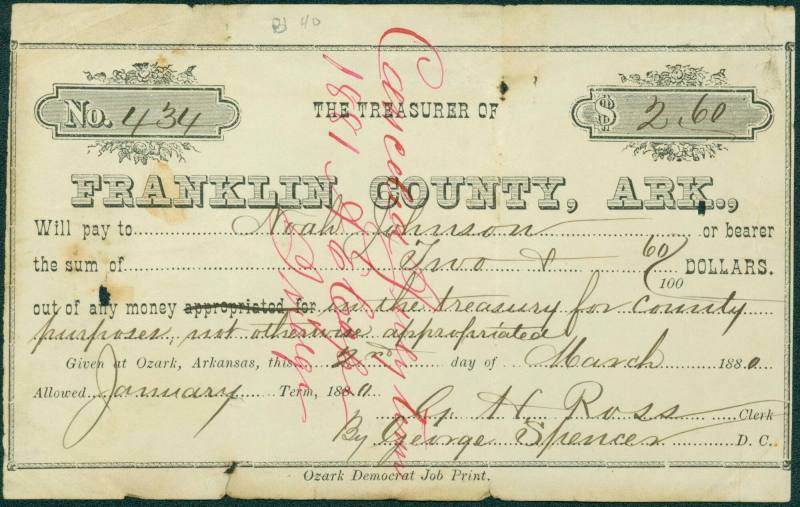 BJ 40
No. 434
THE TREASURER OF
$ 2.60
FRANKLIN COUNTY, ARK.,
Will pay to Noah Johnson or bearer
the sum of Two & 60/100 DOLLARS.
out of any money appropriated for in the treasury for county
purposes, not otherwise appropriated
Given at Ozark, Arkansas, this 2nd day of March 1880
Allowed January Term, 1880
H. Ross Clerk
By George Spencer D. C.
Ozark Democrat Job Print.
July
1881